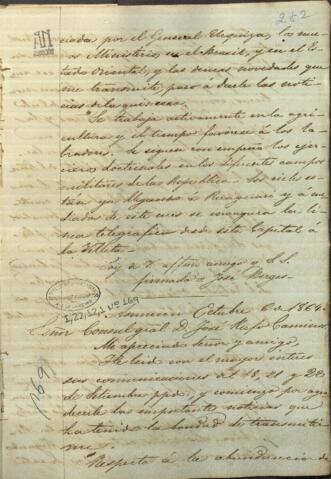 282
AN
ciada, por el General Urquiza, los nue
vos Ministerios en el Brasil, y en el Es
tado Oriental, y las demas novedades que
me transmite, paso a darle las noti
cias de la quincena.
"Se trabaja activamente en la agri
cultura y el tiempo favorece à los la
bradores. Se siguen con empeño los ejer
cicios doctrinales en los diferentes campos
militares de la República. Los rieles es
tan ya llegando à Paraguari y a me
diados de este mes se inaugura la li
nea telegrafica desde esta Capital a
la Villeta.
Soy de V. afftmo amigo y S. S.
firmado José Berges.
I,22,12,1 Nº 169
Asuncion Octubre 6 de 1864.
Señor Consul gral D. José Rufo Caminos
Mi apreciado Señor y amigo.
He leido con el mayor interes
sus comunicaciones del 18, 21 y 22
de Setiembre ppdo, y comienzo por agra
decerle las importantes noticias que
ha tenido la bondad de transmitir
me.
"Respecto á la abundancia de
169